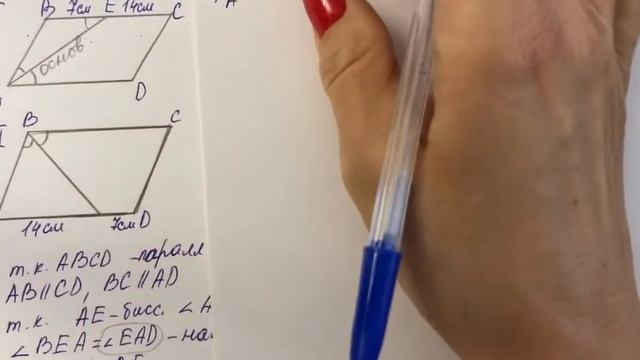 B 7см E 14см C
основ
D
B C
14см 7см D
т.к. ABCD - паралл
AB||CD, BC||AD
т.к. AE - бисс. ∠A
∠BEA = ∠EAD - на